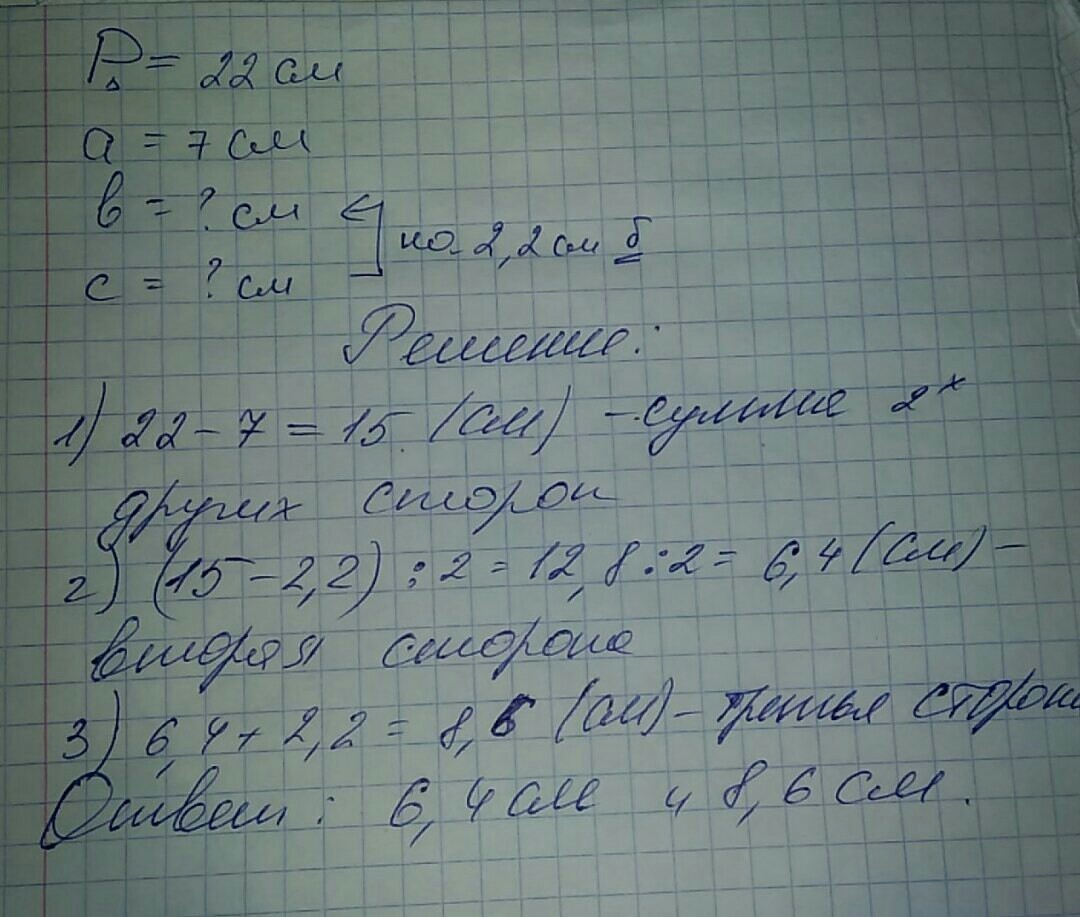 P△ = 22 см
a = 7 см
в = ? см
на 2,2 см б
c = ? см
Решение:
1) 22 - 7 = 15 (см) - сумма 2х
других сторон
2) (15 - 2,2) : 2 = 12,8 : 2 = 6,4 (см) -
вторая сторона
3) 6,4 + 2,2 = 8,6 (см) - третья сторона
Ответ: 6,4 см и 8,6 см.